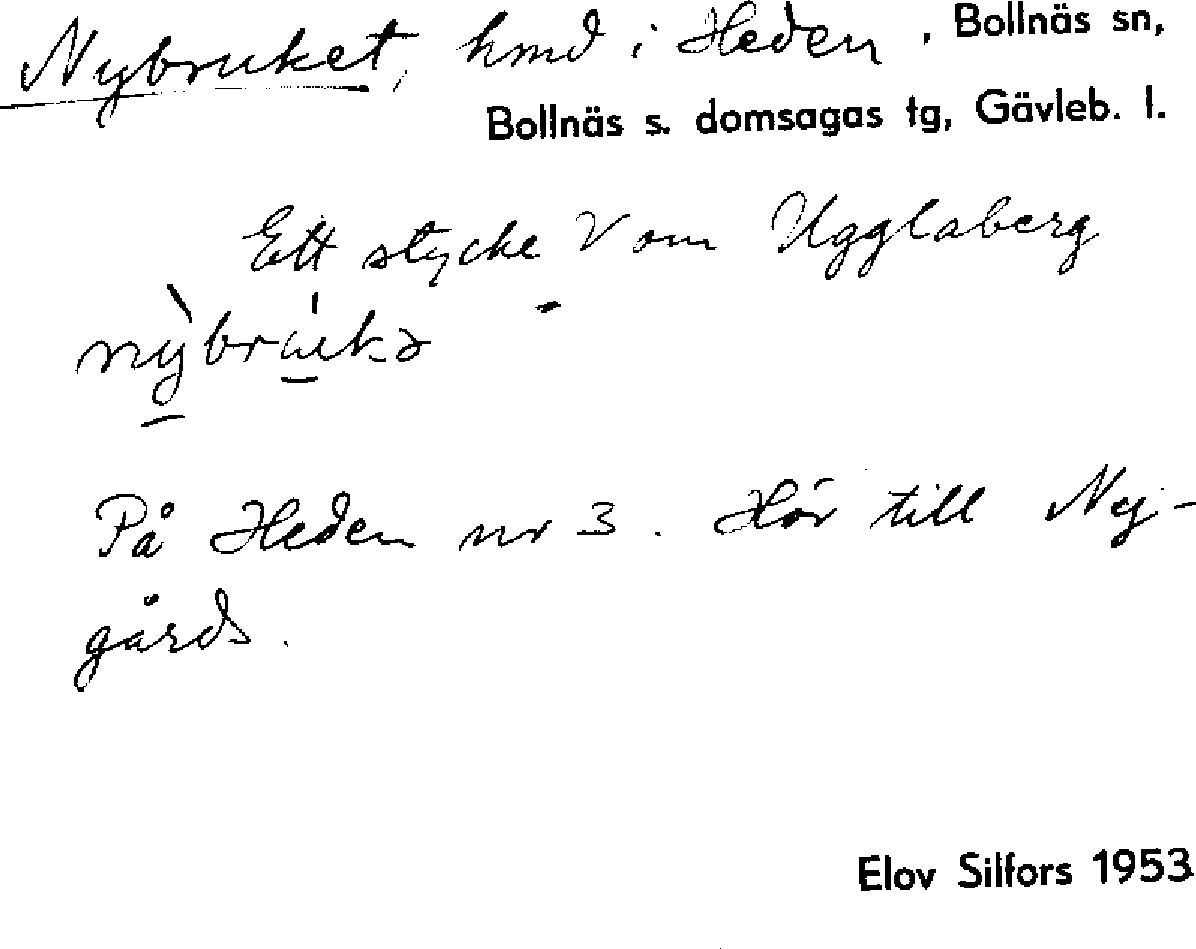 Nybruket, hmd i Heden, Bollnäs sn,
Bollnäs s. domsagas tg, Gävleb. l.
Ett stycke V om Ugglaberg
nỳbrúkə
På Heden nr 3. Hör till Ny-
gårds.
Elov Silfors 1953